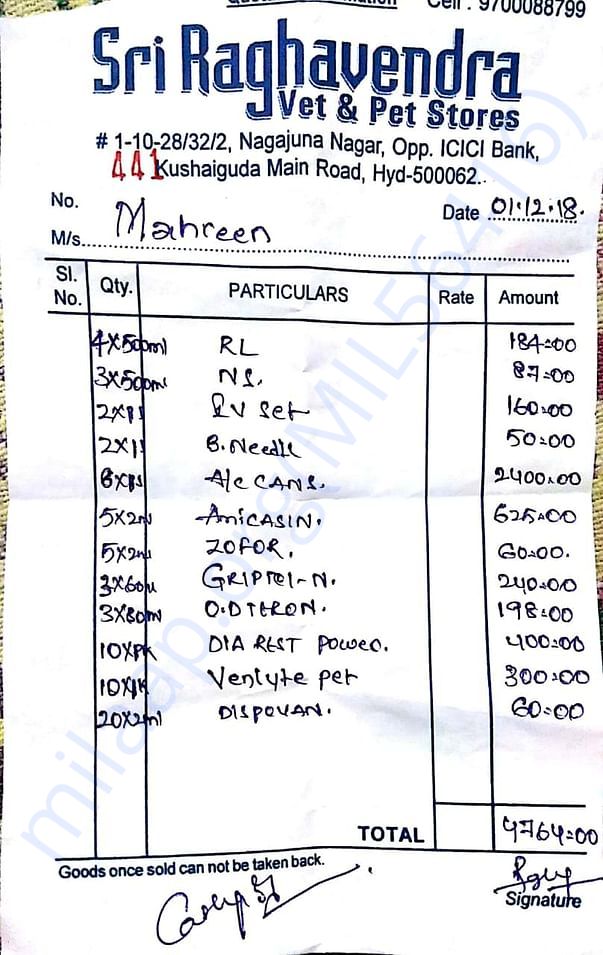 Cell : 9700088799
Sri Raghavendra
Vet & Pet Stores
# 1-10-28/32/2, Nagajuna Nagar, Opp. ICICI Bank,
Kushaiguda Main Road, Hyd-500062.
No. 441
Date 01.12.18.
M/s. Mahreen
Sl. No. Qty. PARTICULARS Rate Amount
4x500ml RL 184=00
3x500ml NS. 87=00
2x1 IV Set 160=00
2x1 B. Needle 50=00
6x A/c CANS. 2400=00
5x2ml AmiCASIN. 625=00
5x2ml ZOFOR. 60=00.
3x60 GRIPTOI-N. 240=00
3x80ml O.DTERON. 198=00
10xPK DIA REST Power. 400=00
10xPK Venlyte pet 300=00
20x2ml DISPOVAN. 60=00
TOTAL 4764=00
Goods once sold can not be taken back.
Signature
milaap.org(MIL56416)